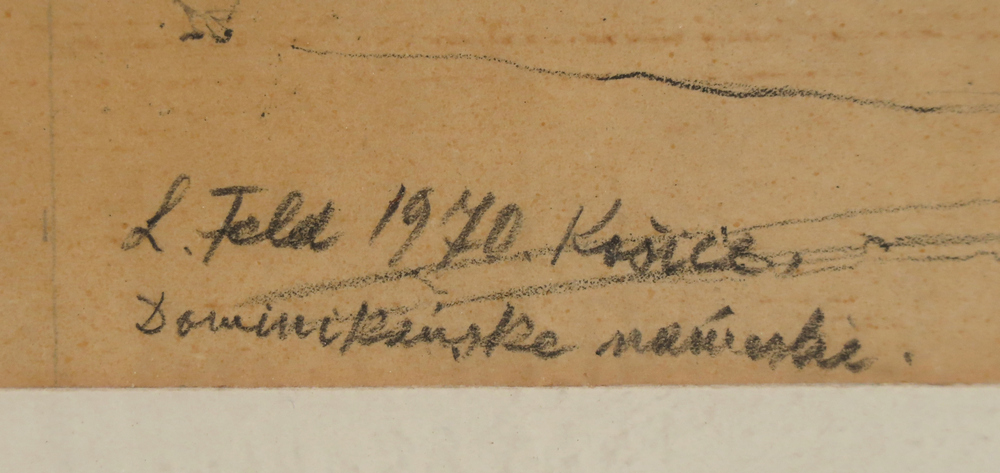 L. Feld 1970 Košice,
Dominikánske námestie.